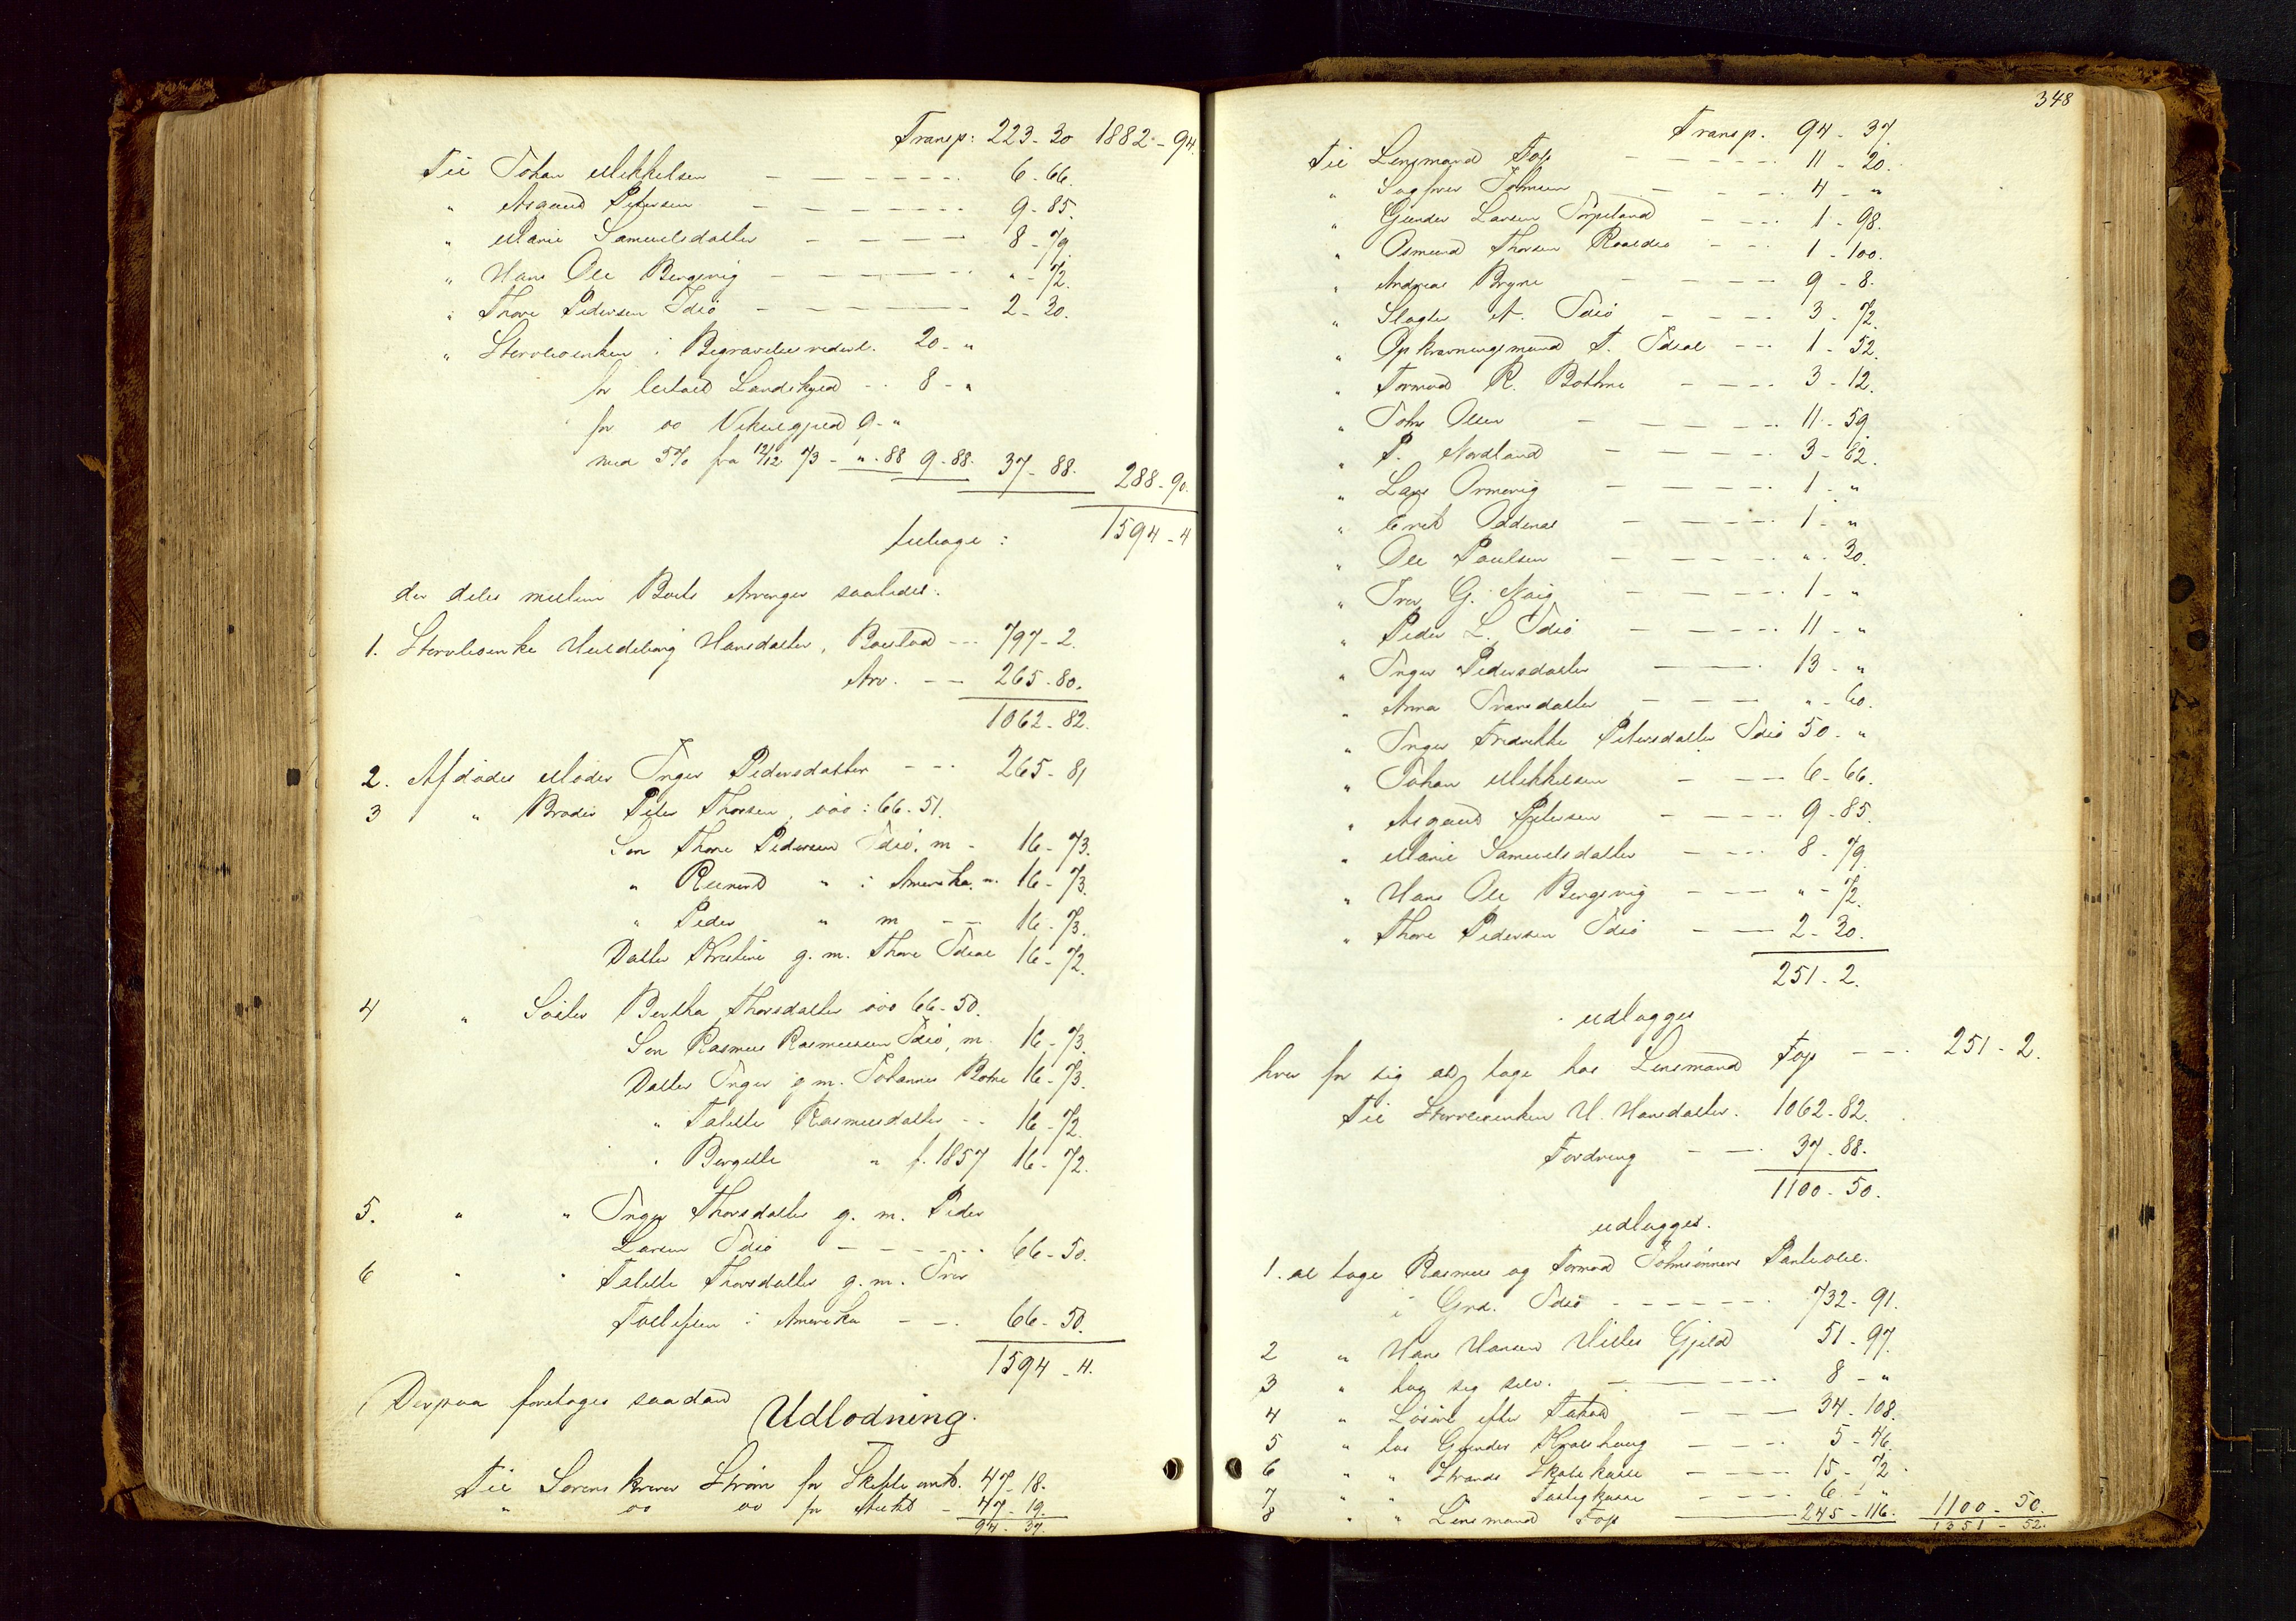 Transp: 223-30 1882-94.
Til Johan Mikkelsen - - - - - - 6-66.
" Asgaud Petersen - - - - - - 9-85.
" Marie Samuelsdatter - - - - - 8-79.
" Hans Ole Bergevig - - - - - - "-72.
" Thore Pedersen Idsö - - - - - - 2-30.
" Stervboenken i Begravelsesvederl. 20-"
for betalt Landskyld - - 8-"
for do Vikarsgjeld 9-"
med 5% fra 12/12 73 - "-88 9-88. 37-88. 288-90.
tilbage: 1594-4
der deles mellem Boets Arvinger saaledes:
1. Stervboenke Huldeborg Hansdatter, Boeslod - - - 797-2.
Arv. - - 265-80.
1062-82.
2. Afdødes Moder Inger Pedersdatter - - - 265-81
3 " Broder Peter Thorsen, død: 66-51.
Søn Thore Pedersen Idsö, m - 16-73.
" Reinert " i Amerika. m. 16-73.
" Peder " m - - 16-73.
Datter Kristine g. m. Thore Idsal 16-72.
4 " Søster Bertha Thorsdatter død 66-50.
Søn Rasmus Rasmussen Idsö, m. 16-73.
Datter Inger g m. Johannes Botne 16-73.
" Talette Rasmusdatter - - 16-72.
" Bergitte " f. 1857 16-72.
5. " " Inger Thorsdatter g. m. Peder
Larsen Idsö - - - - - 66-50.
6 " " Talette Thorsdatter g. m. Iver
Tollefsen i Amerika - - - 66-50.
1594-4.
Derpaa foretages saadan Udlodning.
Til Sorenskriver Strøm for Skifte omk. 47-18.
" do do for Aukt - 47-19.
94-37.
348
Transp. 94-37.
Til Lensmand Fop - - - - - 11-20.
" Sagfører Johnsen - - - - 4-"
" Gunder Larsen Torpeland - - - - 1-98.
" Osmund Thorsen Roaldsö - - - 1-100.
" Andreas Bryne - - - - - 9-8.
" Slagter A. Idsö - - - - 3-72.
" Opkrævningsmand T. Idsal - - - 1-52.
" Tormod R. Bothne - - - - 3-12.
" John Olsen - - - - - 11-59
" P. Nordland - - - - - 3-62.
" Lars Ormevig - - - - - 1-"
" Erik Oddenæs - - - - - 1-"
" Ole Paulsen - - - - - "-30.
" Iver G. Naig - - - - - 1-"
" Peder L. Idsö - - - - - 11-"
" Inger Pedersdatter - - - 13-"
" Anna Iversdatter - - - "-60.
" Inger Fredrikke Petersdatter Idsö 50-"
" Johan Mikkelsen - - - 6-66.
" Asgaud Petersen - - - - 9-85.
" Marie Samuelsdatter - - - 8-79.
" Hans Ole Bergevig - - - "-72.
" Thore Pedersen Idsö - - 2-30.
251-2.
udlægges
hver for sig at tage hos Lensmand Fop - - - 251-2.
Til Stervboenken H. Hansdatter. 1062-82.
Fordring - - - 37-88.
1100-50.
udlægges.
1. at tage Rasmus og Tormod Johnsønners Panteobl.
i Grd. Idsö - - - - - - 732-91.
2 " Hans Hansen Hilles Gjeld 51-97.
3 " hos sig selv. - - - - - 8-"
4 " Løsøre efter Takst - - - 34-108.
5 " hos Gunder Kvalshaug - - - - 5-46.
6 " " Strands Skolekasse - - - - 15-72
7 " " " Fattigkasse - - - - 6-"
8 " " Lensmand Fop - - - 245-116. 1100-50.
1351-52.